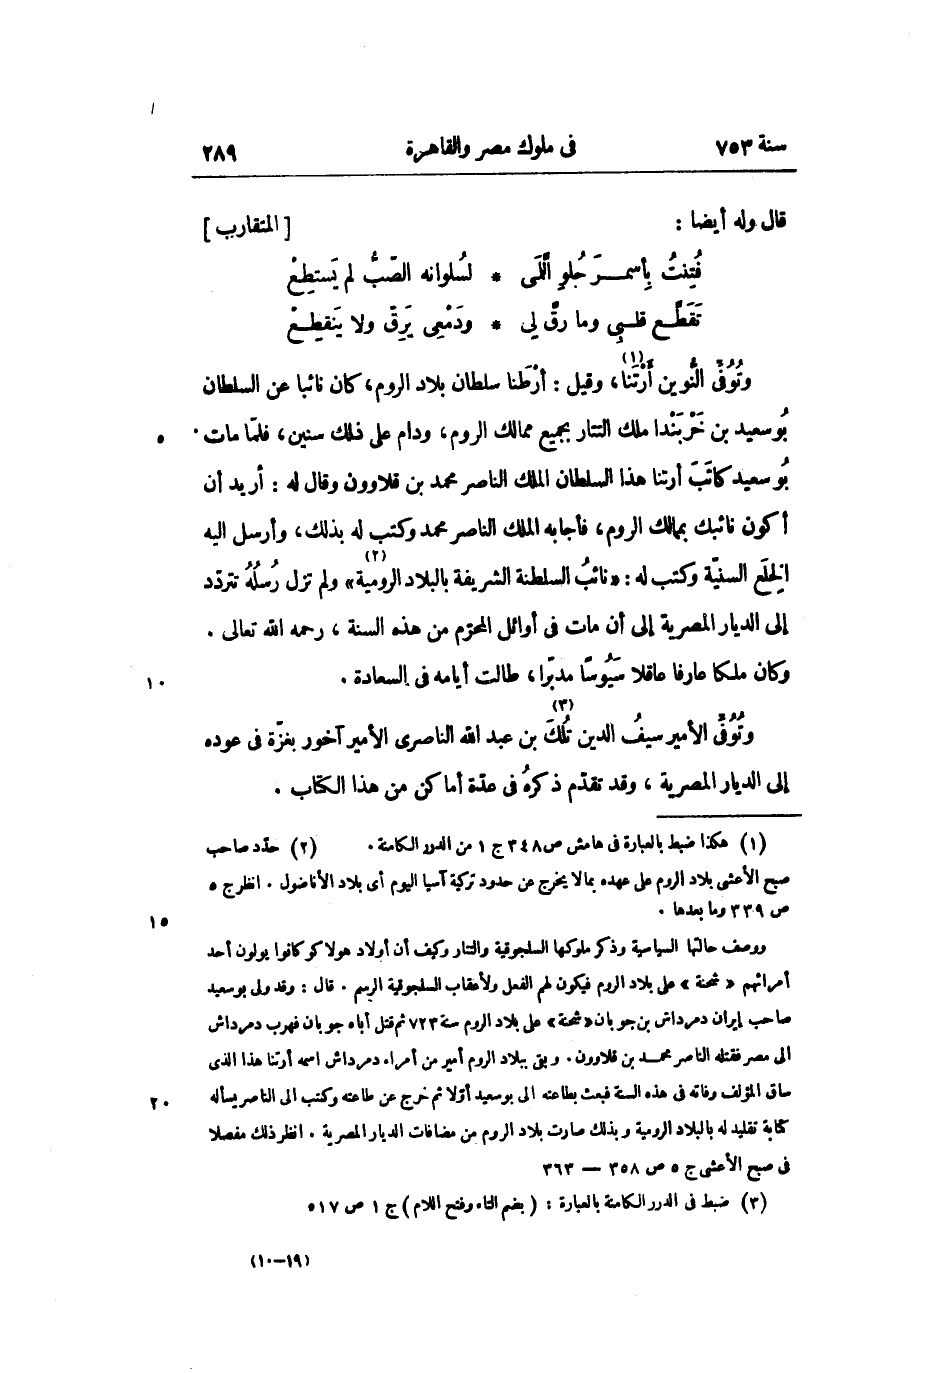 سنة ٧٥٣ فى ملوك مصر والقاهرة ٢٨٩
قال وله أيضا : [المتقارب]
فُتِنتُ بِأسمـــرَ حُلوِ اللَّمَى * لسُلوانه الصّبُّ لم يَستطِعْ
تَقَطَّع قلبِى وما رقّ لى * ودَمْعِى يَرِقّ ولا يَنقطِعْ
وتُوُفِّى النُّوين أَرْتَنا(١)، وقيل : أَرْطَنا سلطان بلاد الروم، كان نائبا عن السلطان
بُو سعيد بن خَرْبَنْدا ملك التتار بجميع ممالك الروم، ودام على ذلك سنين، فلمّا مات ٥
بُو سعيد كاتَبَ أرتنا هذا السلطان الملك الناصر محمد بن قلاوون وقال له : أريد أن
أكون نائبك بممالك الروم، فأجابه الملك الناصر محمد وكتب له بذلك، وأرسل اليه
الخِلَع السنيّة وكتب له : «نائبُ السلطنة الشريفة بالبلاد الرومية(٢)» ولم تزل رُسُلُه تتردّد
إلى الديار المصرية إلى أن مات فى أوائل المحرّم من هذه السنة ، رحمه الله تعالى .
وكان ملكا عارفا عاقلا سَيُوسًا مدبّرا، طالت أيامه فى السعادة . ١٠
وتُوُفِّى الأمير سيفُ الدين تُلَكَ(٣) بن عبد الله الناصرى الأمير آخور بغزّة فى عوده
إلى الديار المصرية ، وقد تقدّم ذكرهُ فى عدّة أماكن من هذا الكتاب .
(١) هكذا ضبط بالعبارة فى هامش ص ٣٤٨ ج ١ من الدرر الكامنة . (٢) حدّد صاحب
صبح الأعشى بلاد الروم على عهده بما لا يخرج عن حدود تركية آسيا اليوم أى بلاد الأناضول . انظر ج ٥
ص ٣٣٩ وما بعدها . ١٥
ووصف حالتها السياسية وذكر ملوكها السلجوقية والتتار وكيف أن أولاد هولاكو كانوا يولون أحد
أمرائهم « شحنة » على بلاد الروم فيكون لهم الفعل ولأعقاب السلجوقية الرسم . قال : وقد ولى بوسعيد
صاحب إيران دمرداش بن جوبان «شحنة» على بلاد الروم سنة ٧٢٣ ثم قتل أباه جوبان فهرب دمرداش
الى مصر فقتله الناصر محمد بن قلاوون . وبقى ببلاد الروم أمير من أمراء دمرداش اسمه أرتنا هذا الذى
ساق المؤلف وفاته فى هذه السنة فبعث بطاعته الى بوسعيد أوّلا ثم خرج عن طاعته وكتب الى الناصر يسأله ٢٠
كتابة تقليد له بالبلاد الرومية وبذلك صارت بلاد الروم من مضافات الديار المصرية . انظر ذلك مفصلا
فى صبح الأعشى ج ٥ ص ٣٥٨ — ٣٦٣
(٣) ضبط فى الدرر الكامنة بالعبارة : ( بضم التاء وفتح اللام ) ج ١ ص ٥١٧
(١٩-١٠)